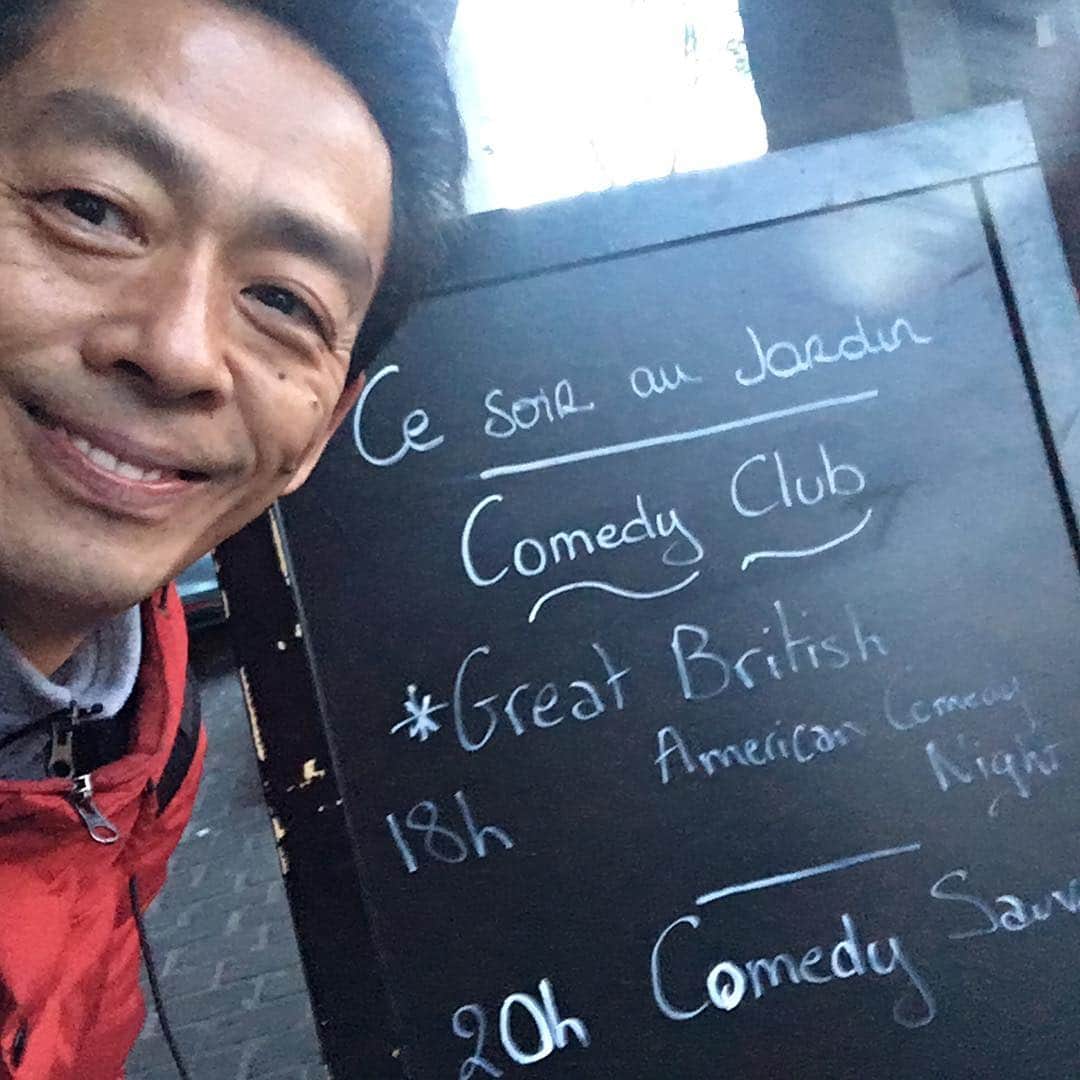 Ce soir au Jardin
Comedy Club
*Great British
American Comedy
Night
18h
20h Comedy